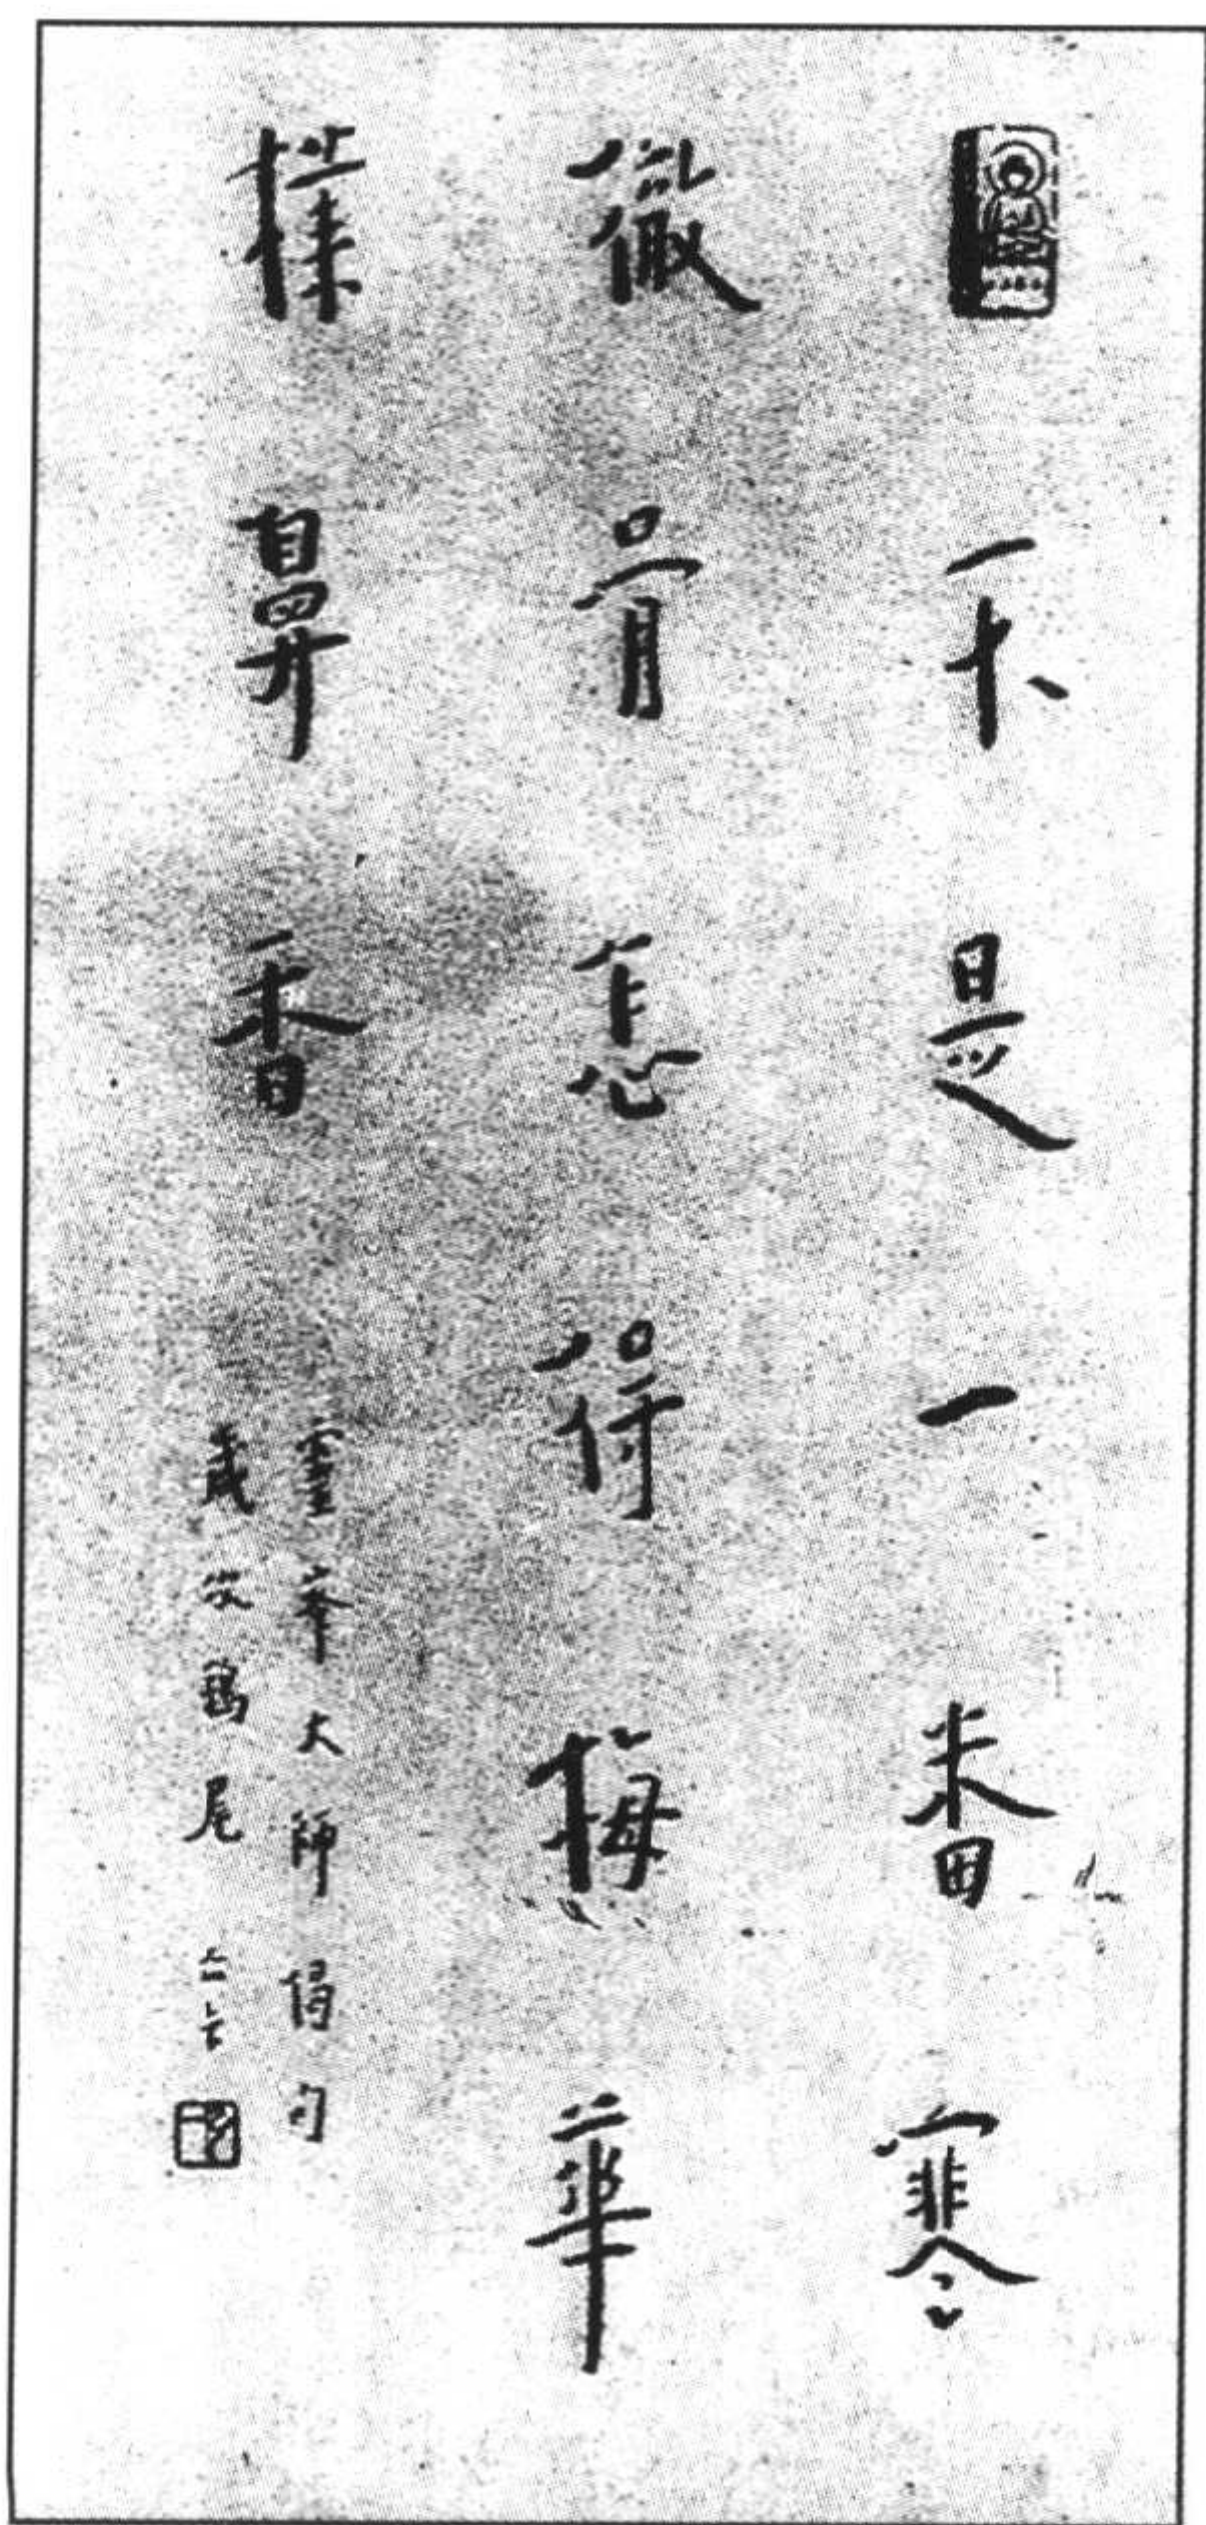 不是一番寒
徹骨怎得梅華
撲鼻香
靈峯大師偈句
歲次鶉尾 一音